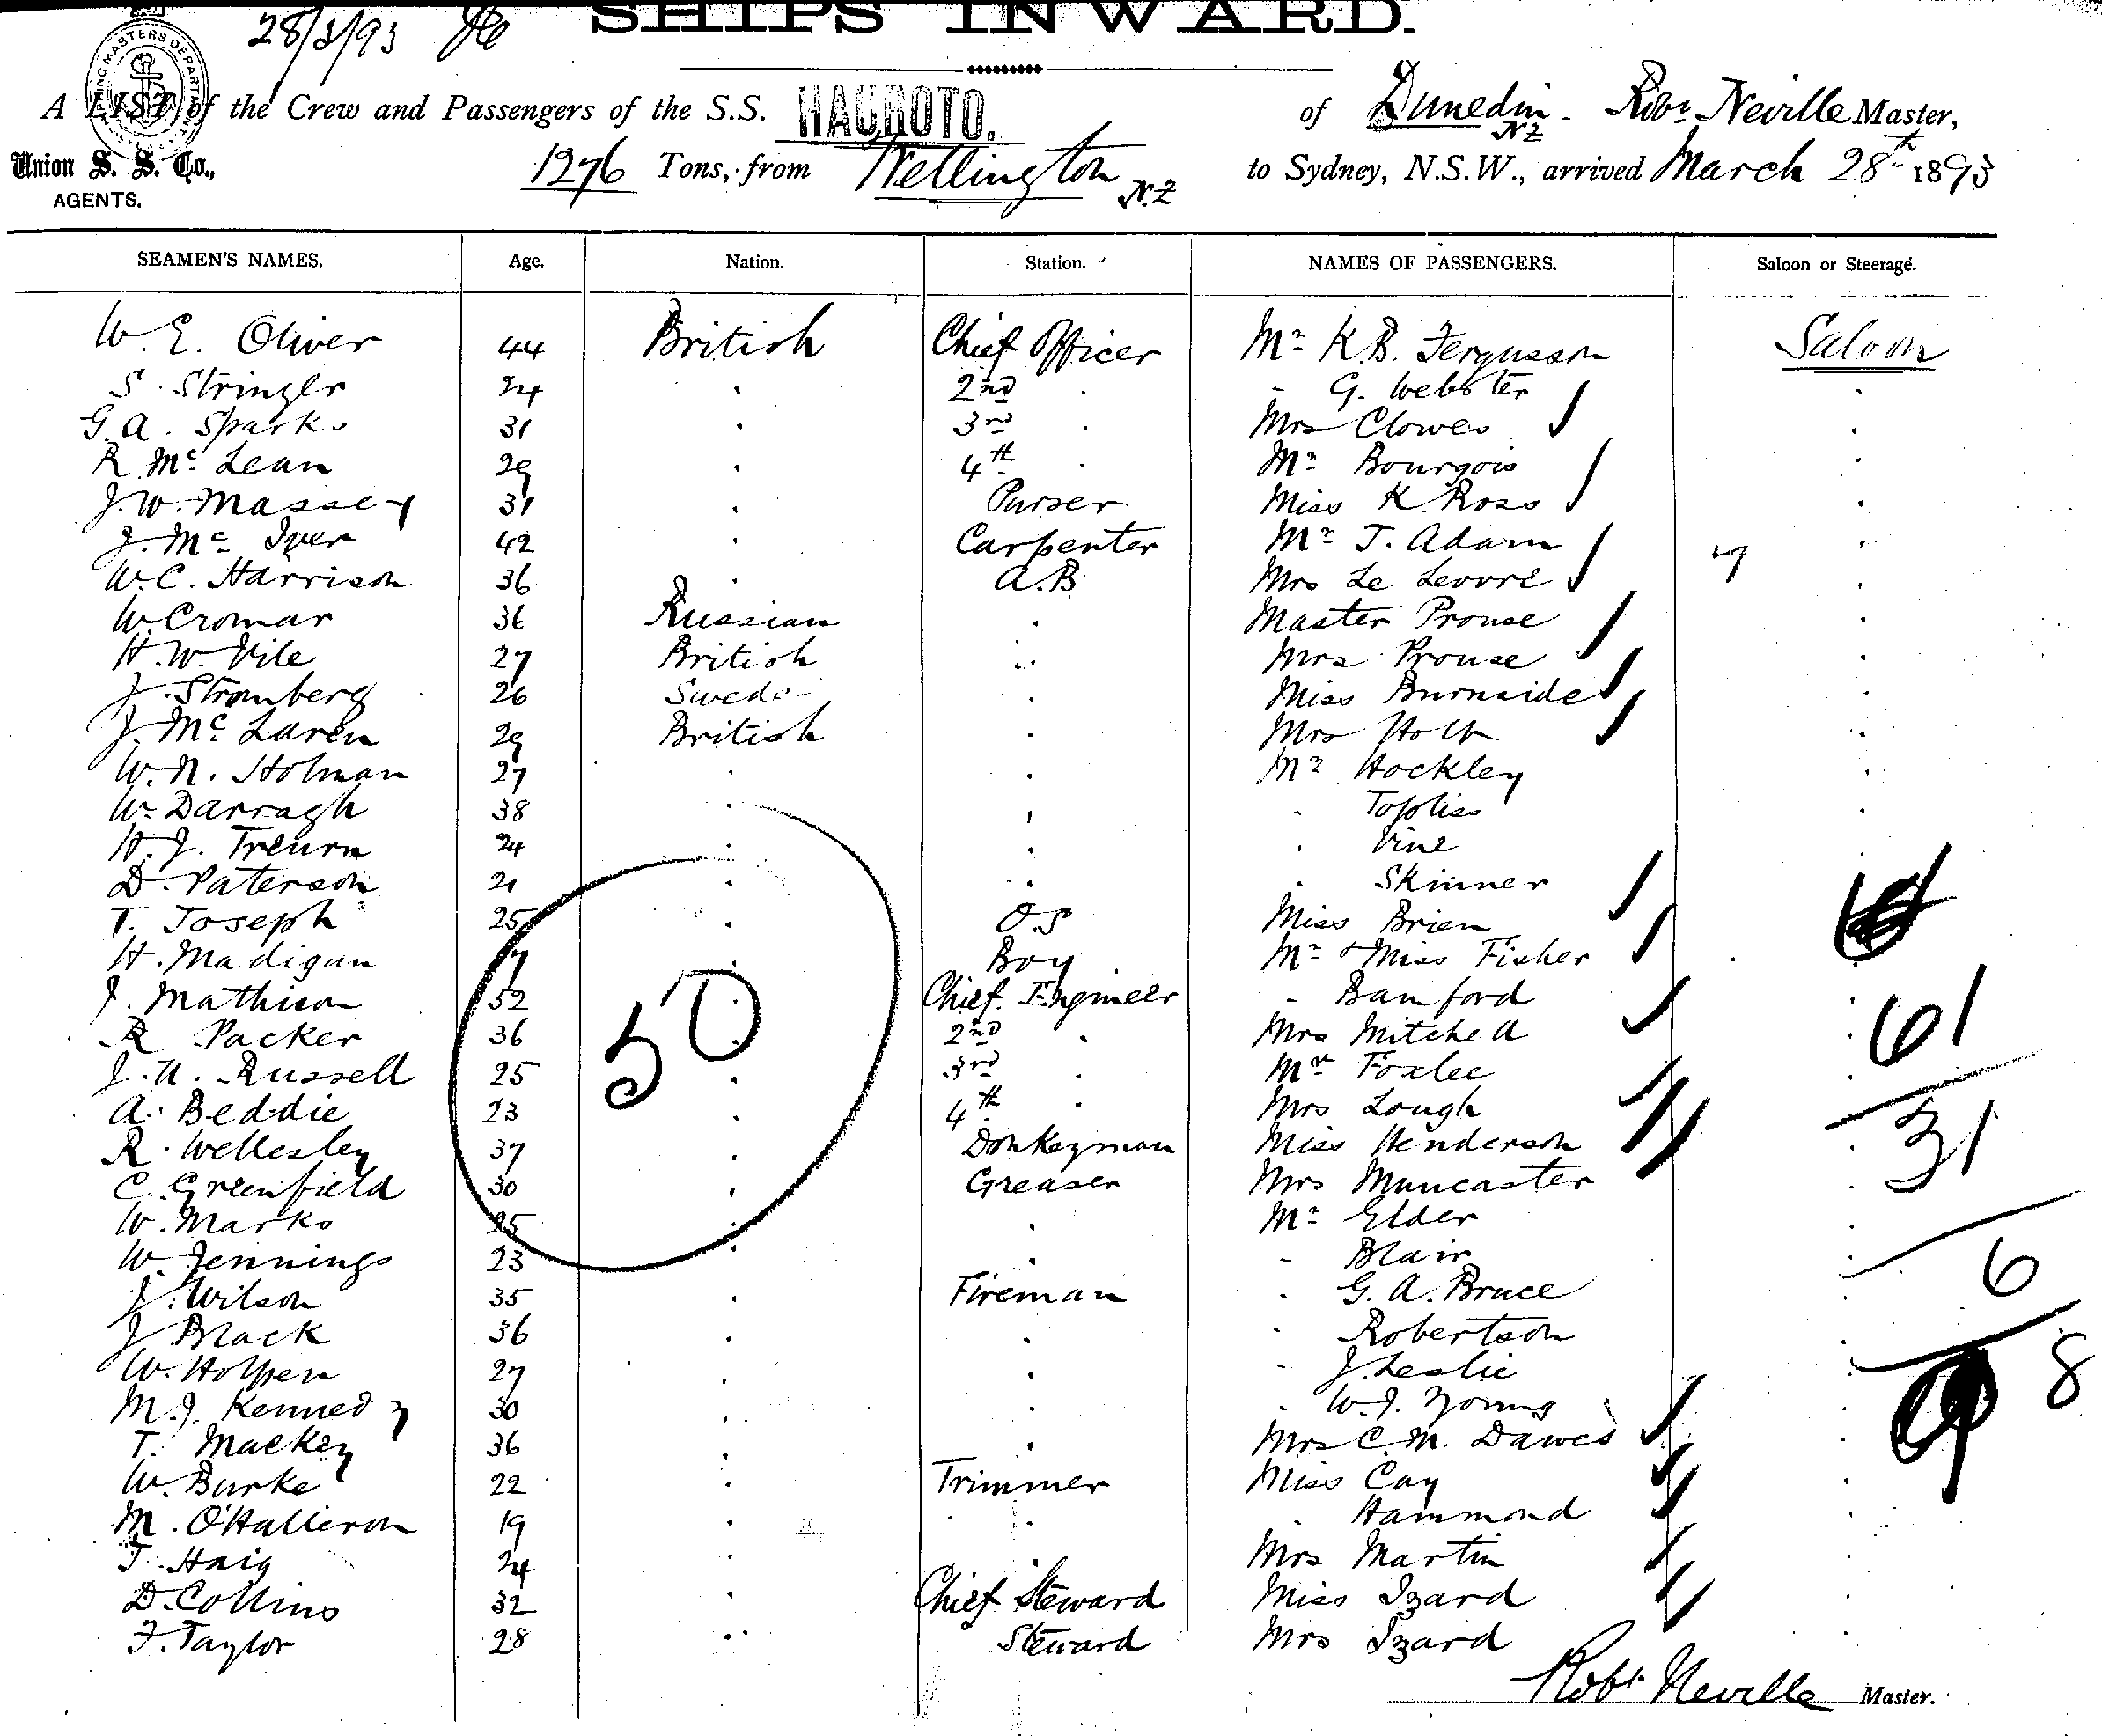 28/3/93
SHIPS INWARD.
SHIPPING MASTERS DEPARTMENT
A LIST of the Crew and Passengers of the S.S. HAUROTO. of Dunedin NZ Robt Neville Master,
Union S. S. Co., AGENTS. 1276 Tons, from Wellington N.Z to Sydney, N.S.W., arrived March 28th 1893
SEAMEN'S NAMES. Age. Nation. Station. NAMES OF PASSENGERS. Saloon or Steerage.
W. E. Oliver 44 British Chief Officer Mr K.B. Fergusson Saloon
S. Stringer 24 " 2nd " " G. Webster "
G. A. Sparks 31 " 3rd " Mrs Clowes "
R. Mc Lean 29 " 4th " Mr Bourgois "
J. W. Massey 31 " Purser Miss K. Ross "
J. Mc Iver 42 " Carpenter Mr J. Adam "
W. C. Harrison 36 " A.B. Mrs Le Levvre "
W. Cromar 36 Russian " Master Prouse "
H. W. Vile 27 British " Mrs Prouse "
J. Stromberg 26 Swede " Miss Burnside "
J. Mc Laren 29 British " Mrs Holt "
W. N. Holman 27 " " Mr Hockley "
W. Darragh 38 " " " Topliss "
H. J. Treurn 24 " " " Vine "
D. Paterson 21 " " " Skinner "
T. Joseph 25 " O.S Miss Brien
H. Madigan 17 " Boy Mr & Miss Fisher "
J. Mathison 52 " Chief Engineer " Bamford "
R Packer 36 " 2nd " Mrs Mitchell " 61
J. N. Russell 25 " 3rd " Mr Foxlee "
A. Beddie 23 " 4th " Mrs Lough "
R. Wellesley 37 " Donkeyman Miss Henderson " 31
C. Greenfield 30 " Greaser Mrs Muncaster "
W. Marks 25 " " Mr Elder "
W. Jennings 23 " " " Blair " 6
J. Wilson 35 " Fireman " G. A. Bruce "
J Black 36 " " " Robertson "
W. Holpen 27 " " " J. Leslie " 8
M. J. Kennedy 30 " " " W. J. Young "
T. Mackey 36 " " Mrs C. M. Dawes "
W. Burke 22 " Trimmer Miss Cay "
M. O'Halleron 19 " " " Hammond "
T. Haig 24 " " Mrs Martin "
D. Collins 32 " Chief Steward Miss Izard "
F. Taylor 28 " Steward Mrs Izard "
50
Robt Neville Master.